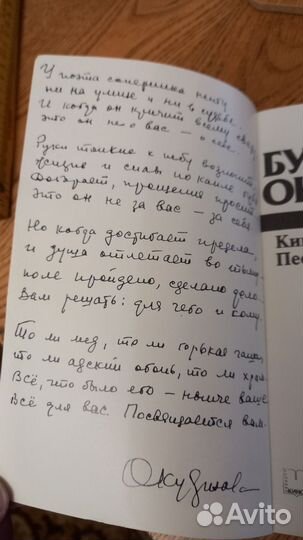 У поэта соперника нету
ни на улице и ни в судьбе.
И когда он кричит всему свету,
это он не о вас – о себе.
Руки тонкие к небу возносит,
жизнь и силы по капле губя.
Догорает, прощения просит...
Это он не за вас – за себя.
Но когда достигает предела,
и душа отлетает во тьму,
поле пройдено, сделано дело...
Вам решать: для чего и кому.
То ли мед, то ли горькая чаша,
то ли адский огонь, то ли храм...
Всё, что было его – нынче ваше.
Всё для вас. Посвящается вам.
Окуджава
БУ
ОК
Ки
Пес
Avito